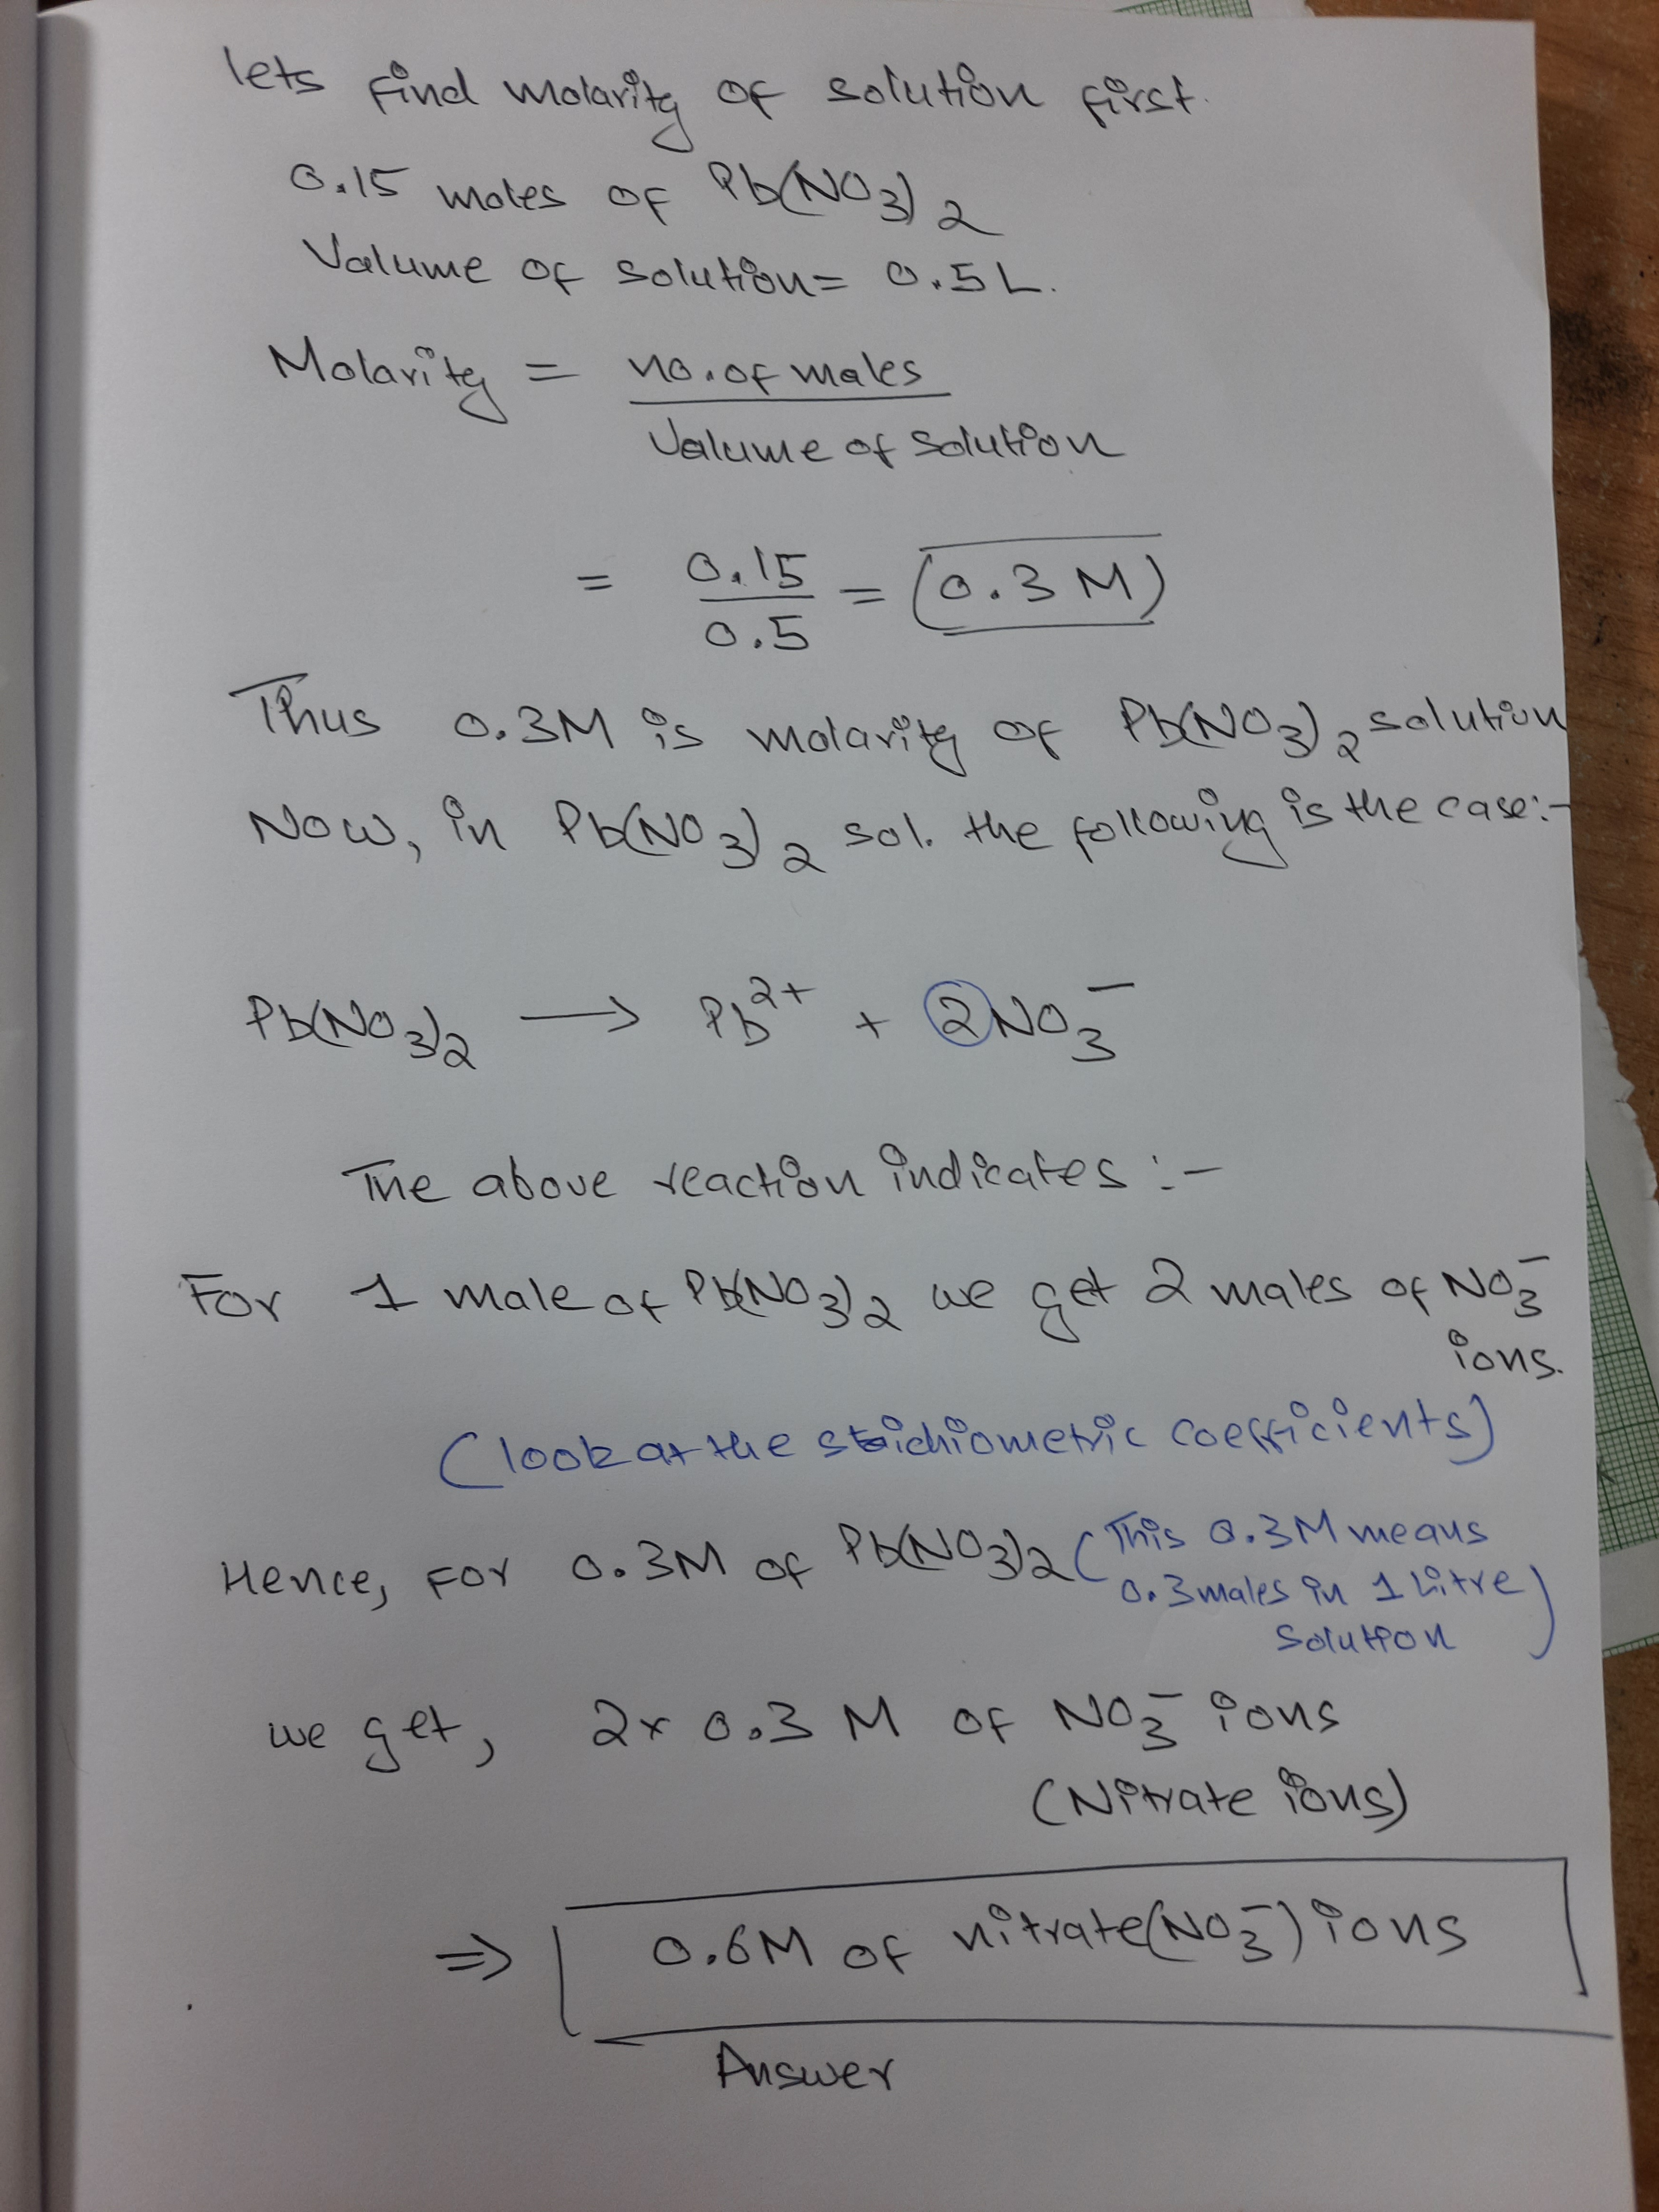 lets find molarity of solution first.
0.15 moles of Pb(NO3)2
Valume of solution = 0.5 L.
Molarity = no. of males
Valume of solution
= 0.15 / 0.5 = (0.3 M)
Thus 0.3M is molarity of Pb(NO3)2 solution
Now, in Pb(NO3)2 sol. the following is the case:-
Pb(NO3)2 → Pb2+ + 2NO3-
The above reaction indicates :-
For 1 male of Pb(NO3)2 we get 2 males of NO3-
ions.
(look at the stoichiometric coefficients)
Hence, for 0.3M of Pb(NO3)2 (This 0.3M means
0.3 males in 1 Litre
solution)
we get, 2 x 0.3 M of NO3- ions
(Nitrate ions)
⇒ 0.6M of nitrate(NO3-) ions
Answer